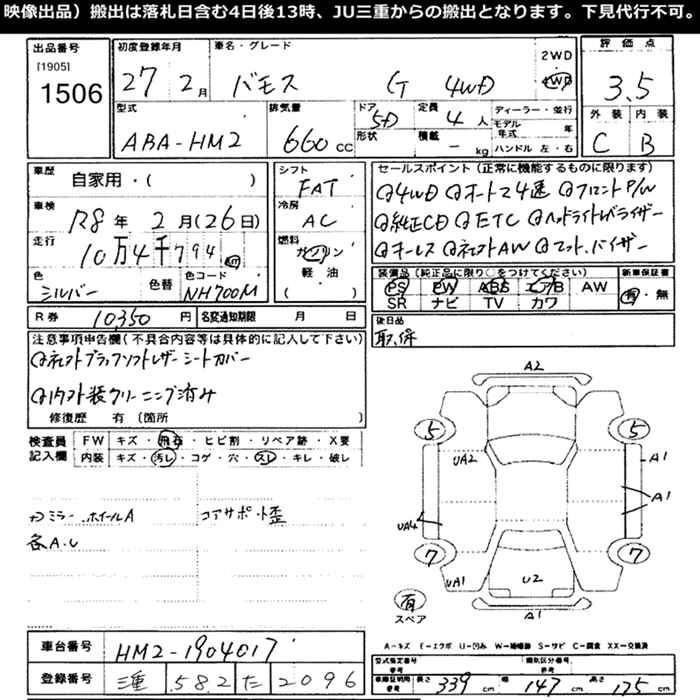 映像出品）搬出は落札日含む4日後13時、JU三重からの搬出となります。下見代行不可。
出品番号 初度登録年月 車名・グレード 評価点
[1905]
1506 27年 2月 バモス G 4WD 2WD 4WD 3.5
型式 排気量 ドア 定員 ディーラー・並行 外装 内装
ABA-HM2 660cc 5D 4人 モデル年式 年 C B
形状 積載 - kg ハンドル 左・右
車歴 自家用・( ) シフト FAT セールスポイント (正常に機能するものに限ります)
車検 R8年 2月(26日) 冷房 AC ④4WD ④オートマ4速 ④フロントP/W
④純正CD ④ETC ④ヘッドライトレバライザー
走行 10万4千794km 燃料 ガソリン 軽油 ( ) ④キーレス ④社外AW ④マット、バイザー
色 シルバー 色替 色コード NH700M 装備品 (純正品に限り○をつけてください) 新車保証書
PS PW ABS エアB AW 有・無
SR ナビ TV カワ
R券 10,350円 名変通知期限 月 日 後日品
取、保
注意事項申告欄(不具合内容等は具体的に記入して下さい)
④社外ブラックソフトレザーシートカバー
④内外装クリーニング済み
修復歴 有 〔箇所
検査員記入欄 FW キズ・飛石・ヒビ割・リペア跡・X要
内装 キズ・汚レ・コゲ・穴・スレ・キレ・破レ
ミラー、ホイールA コアサポート歪
各A.U
A2
5 5
UA2 A1
A1
UA4
7 7
UA1 U2
有
スペア A1
A-キズ E-エクボ U-凹み W-補修跡 S-サビ C-腐食 XX-交換済
車台番号 HM2-1904017
型式指定番号 類別区分番号
参考 参考
登録番号 三重 582 た 2096
車庫証明用 参考 長さ 339cm 幅 147cm 高さ 175cm